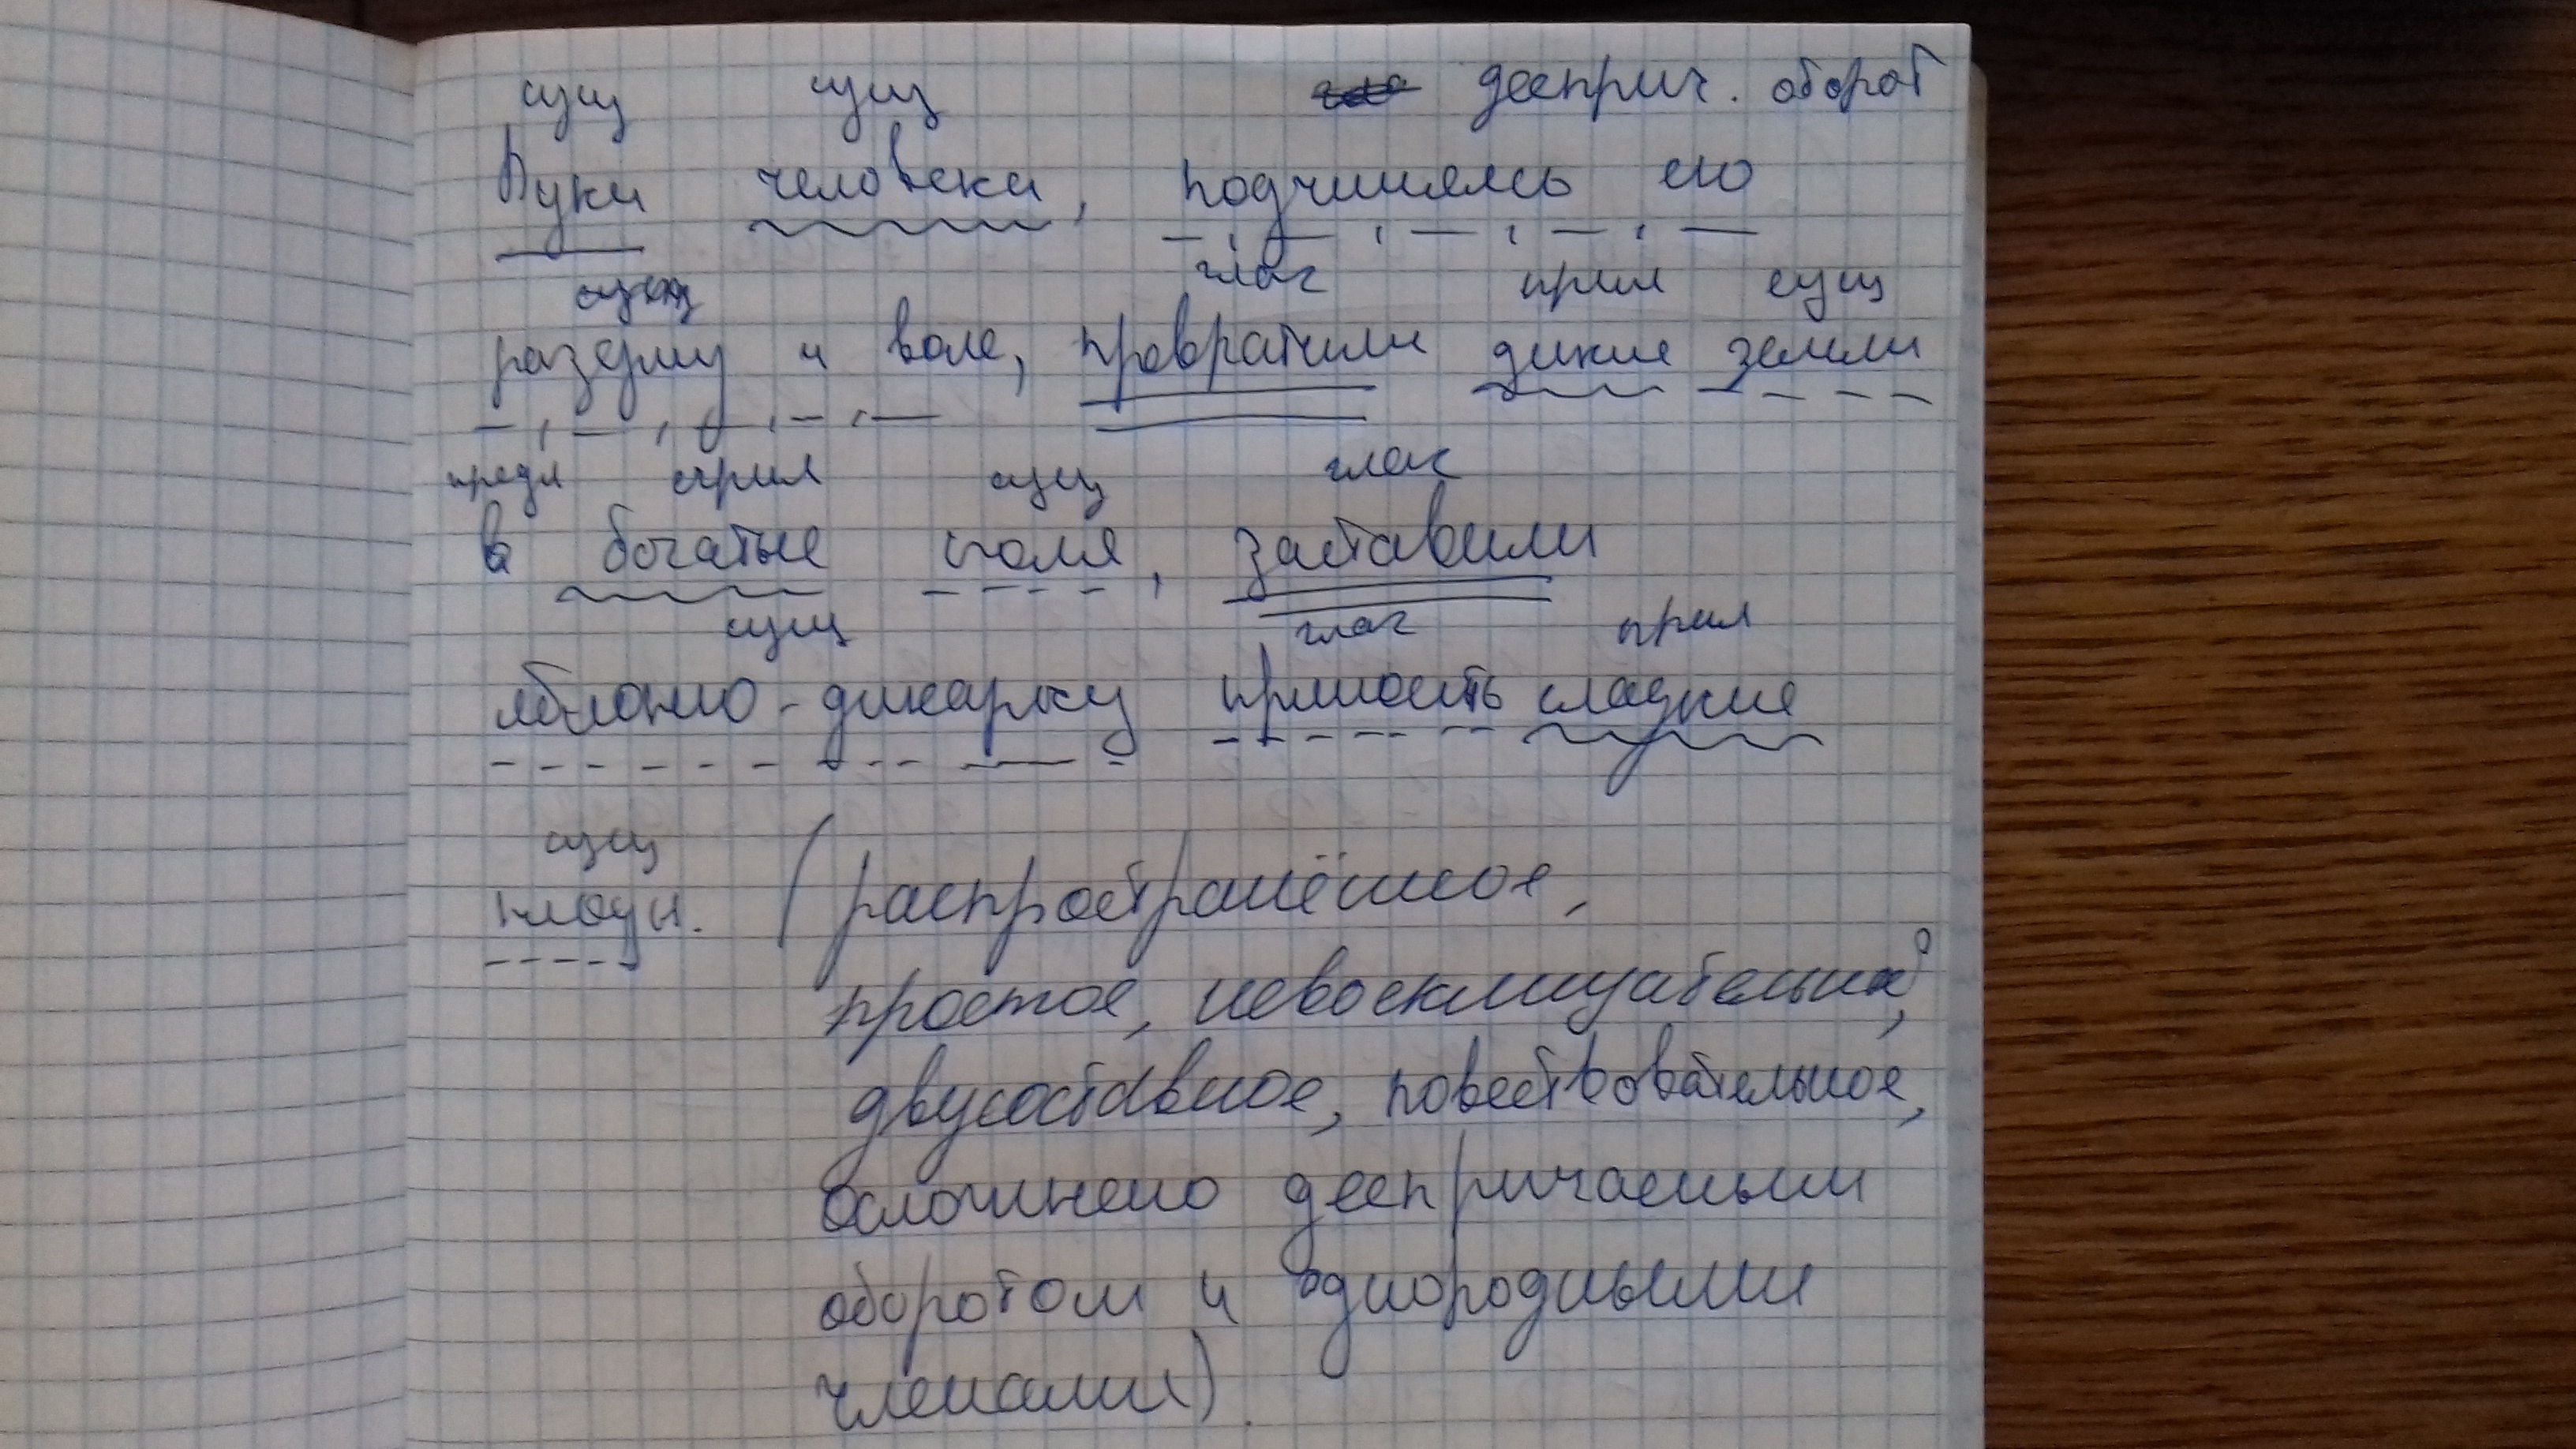 сущ сущ дееприч. оборот
Руки человека, подчиняясь его
сущ глаг прил сущ
разуму и воле, превратили дикие земли
предл прил сущ глаг
в богатые поля, заставили
сущ глаг прил
яблоню-дикарку приносить сладкие
сущ
плоды. (распространённое,
простое, невосклицательное,
двусоставное, повествовательное,
осложнено деепричасным
оборотом и однородными
членами).